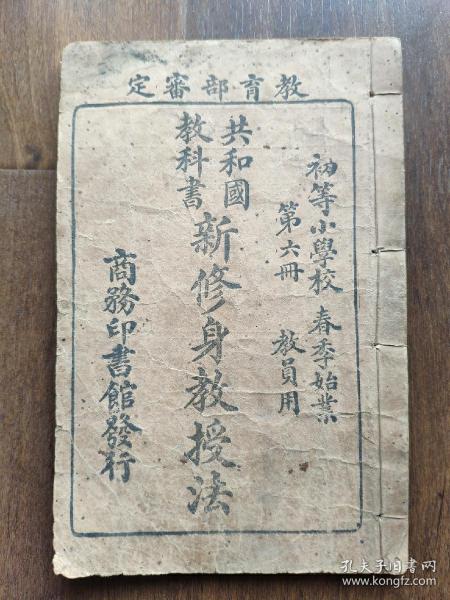 教育部審定
初等小學校 春季始業
第六冊 教員用
共和國
教科書
新修身教授法
商務印書館發行
孔夫子旧书网
www.kongfz.com